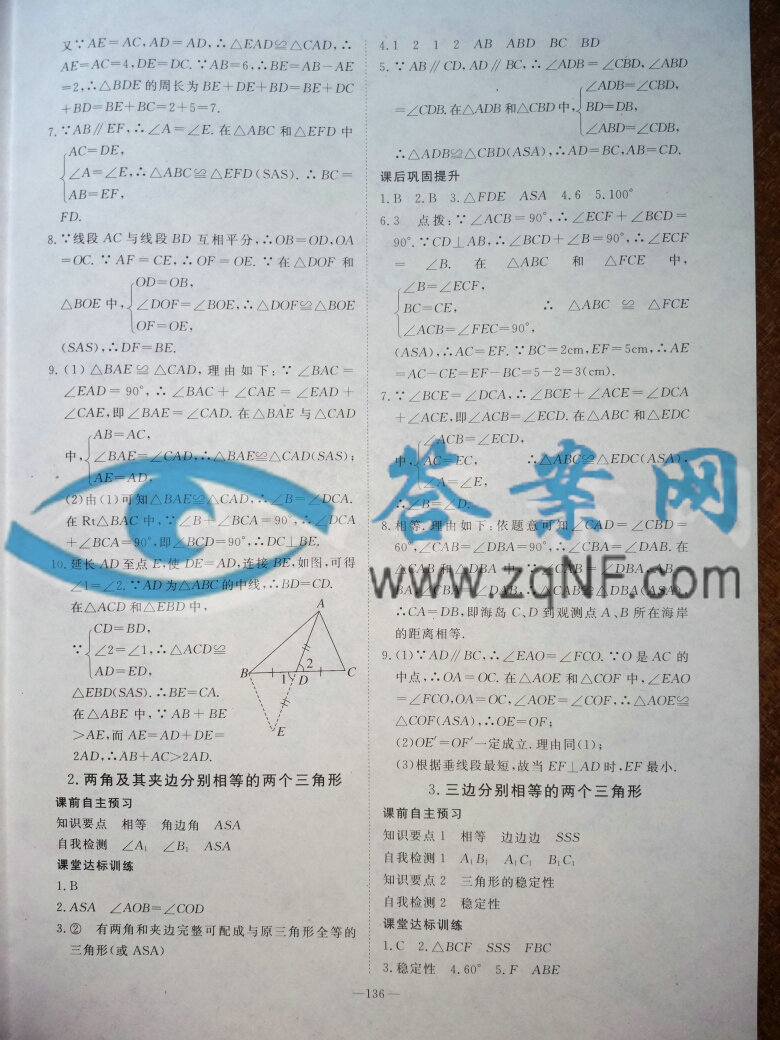 又∵AE=AC,AD=AD,∴△EAD≌△CAD,∴
AE=AC=4,DE=DC.∵AB=6,∴BE=AB-AE
=2,∴△BDE的周长为BE+DE+BD=BE+DC
+BD=BE+BC=2+5=7.
7.∵AB∥EF,∴∠A=∠E.在△ABC和△EFD中
AC=DE,
∠A=∠E,∴△ABC≌△EFD(SAS).∴BC=
AB=EF,
FD.
8.∵线段AC与线段BD互相平分,∴OB=OD,OA
=OC.∵AF=CE,∴OF=OE.∵在△DOF和
OD=OB,
△BOE中,∠DOF=∠BOE,∴△DOF≌△BOE
OF=OE,
(SAS),∴DF=BE.
9.(1)△BAE≌△CAD,理由如下:∵∠BAC=
∠EAD=90°,∴∠BAC+∠CAE=∠EAD+
∠CAE,即∠BAE=∠CAD.在△BAE与△CAD
AB=AC,
中,∠BAE=∠CAD,∴△BAE≌△CAD(SAS);
AE=AD,
(2)由(1)可知△BAE≌△CAD,∴∠B=∠DCA.
在Rt△BAC中,∵∠B+∠BCA=90°,∴∠DCA
+∠BCA=90°,即∠BCD=90°,∴DC⊥BE.
10.延长AD至点E,使DE=AD,连接BE,如图,可得
∠1=∠2.∵AD为△ABC的中线,∴BD=CD.
在△ACD和△EBD中,
CD=BD,
∵∠2=∠1,∴△ACD≌
AD=ED,
△EBD(SAS).∴BE=CA.
在△ABE中,∵AB+BE
>AE,而AE=AD+DE=
2AD,∴AB+AC>2AD.
A
B
1
D
2
C
E
2.两角及其夹边分别相等的两个三角形
课前自主预习
知识要点 相等 角边角 ASA
自我检测 ∠A₁ ∠B₁ ASA
课堂达标训练
1.B
2.ASA ∠AOB=∠COD
3.② 有两角和夹边完整可配成与原三角形全等的
三角形(或ASA)
4.1 2 1 2 AB ABD BC BD
5.∵AB∥CD,AD∥BC,∴∠ADB=∠CBD,∠ABD
∠ADB=∠CBD,
=∠CDB.在△ADB和△CBD中,BD=DB,
∠ABD=∠CDB,
∴△ADB≌△CBD(ASA),∴AD=BC,AB=CD.
课后巩固提升
1.B 2.B 3.△FDE ASA 4.6 5.100°
6.3 点拨:∵∠ACB=90°,∴∠ECF+∠BCD=
90°.∵CD⊥AB,∴∠BCD+∠B=90°,∴∠ECF
=∠B.在△ABC和△FCE中,
∠B=∠ECF,
BC=CE, ∴△ABC≌△FCE
∠ACB=∠FEC=90°,
(ASA),∴AC=EF.∵BC=2cm,EF=5cm,∴AE
=AC-CE=EF-BC=5-2=3(cm).
7.∵∠BCE=∠DCA,∴∠BCE+∠ACE=∠DCA
+∠ACE,即∠ACB=∠ECD.在△ABC和△EDC
∠ACB=∠ECD,
中,AC=EC, ∴△ABC≌△EDC(ASA),
∠A=∠E,
∴∠B=∠D.
8.相等.理由如下:依题意可知∠CAD=∠CBD=
60°,∠CAB=∠DBA=90°,∴∠CBA=∠DAB.在
∴CA=DB,即海岛C、D到观测点A、B所在海岸
的距离相等.
9.(1)∵AD∥BC,∴∠EAO=∠FCO.∵O是AC的
中点,∴OA=OC.在△AOE和△COF中,∠EAO
=∠FCO,OA=OC,∠AOE=∠COF,∴△AOE≌
△COF(ASA),∴OE=OF;
(2)OE′=OF′一定成立.理由同(1);
(3)根据垂线段最短,故当EF⊥AD时,EF最小.
3.三边分别相等的两个三角形
课前自主预习
知识要点1 相等 边边边 SSS
自我检测1 A₁B₁ A₁C₁ B₁C₁
知识要点2 三角形的稳定性
自我检测2 稳定性
课堂达标训练
1.C 2.△BCF SSS FBC
3.稳定性 4.60° 5.F ABE
—136—
答案网
www.zqNF.com